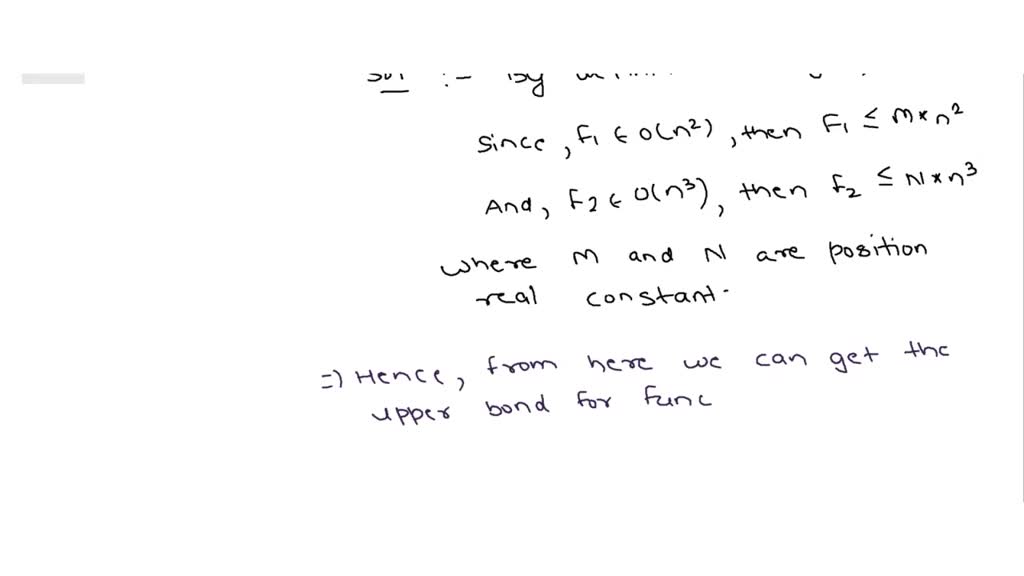 Sol :- By
Since, F₁ ∈ O(n²), then F₁ ≤ M*n²
And, F₂ ∈ O(n³), then f₂ ≤ N*n³
where M and N are position
real constant.
=) Hence, from here we can get the
upper bond for func